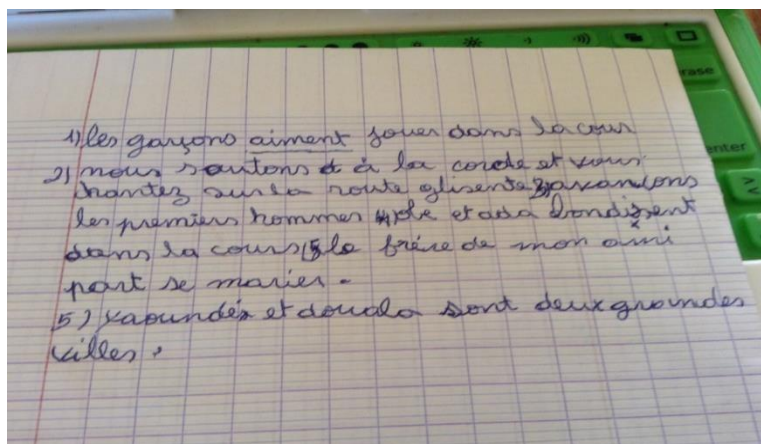 rase
enter
1) les garçons aiment jouer dans la cour
2) nous sautons à la corde et vous
chantez sur la route glisente 3) avandons
les premiers hommes 4) ole et ada bondissent
dans la cours (5 le frère de mon ami
part se marier.
5) yaoundéa et douala sont deux grandes
villes.